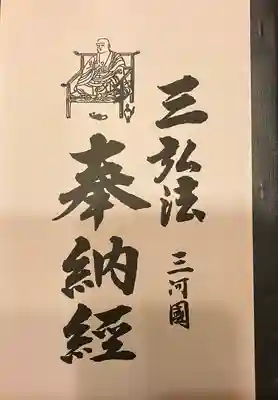 三弘法 三河國
奉納經